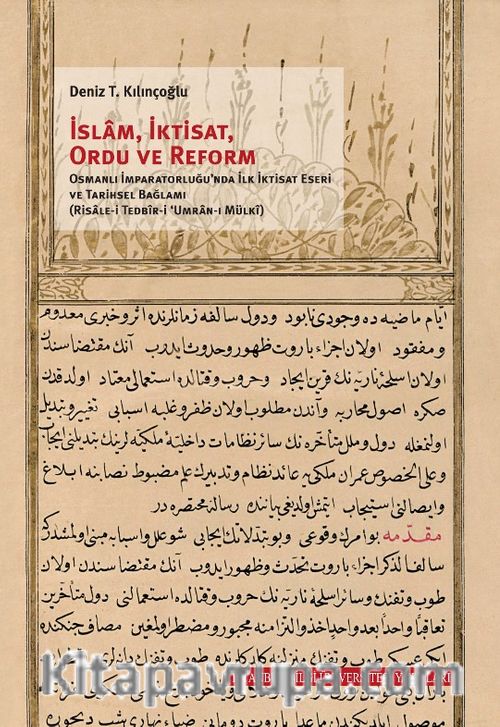 Deniz T. Kılınçoğlu
İSLÂM, İKTİSAT,
ORDU VE REFORM
OSMANLI İMPARATORLUĞU'NDA İLK İKTİSAT ESERİ
VE TARİHSEL BAĞLAMI
(RİSÂLE-İ TEDBÎR-İ ‘UMRÂN-I MÜLKÎ)
ایام ماضیه ده وجودی نابود و دول سالفه زمانلرنده اثر و خبری معدوم
و مفقود اولان اجزاء باروت ظهور و حدوث ایدوب آنك مقتضاسندن
اولان اسلحۀ ناریه نك قرین ایجاد و حروب و قتالده استعمالی معتاد اولدقدن
صكره اصول محاربه و آندن مطلوب اولان ظفر و غلبه اسبابی تغییر و تبدیل
اولنمغله دول و ملل متأخره نك سائر نظامات داخلیه و ملكیه لرینك تبدیلنی ایجاب
و علی الخصوص عمران ملكی یه عائد نظام و تدبیرك علم مضبوط نصابنه ابلاغ
و ایصالنی استیجاب ایتمش اولدیغی بیاننده رسالۀ مختصره در
مقدمه بو امرك وقوعی و بو تبدلاتك ایجابی شو علل و اسبابه مبنی اولمشدركه
سالفا لذكر اجزاء باروت تحدث و ظهور ایدوب آنك مقتضاسندن اولان
طوپ و تفنك و سائر اسلحۀ ناریه نك حروب و قتالده استعمالنی دول متأخرین
تعاقبا واحدا بعد واحد اخذ و التزامنه مجبور و مضطر اولمغین مصاف جنكنده
Kitapavrupa.com